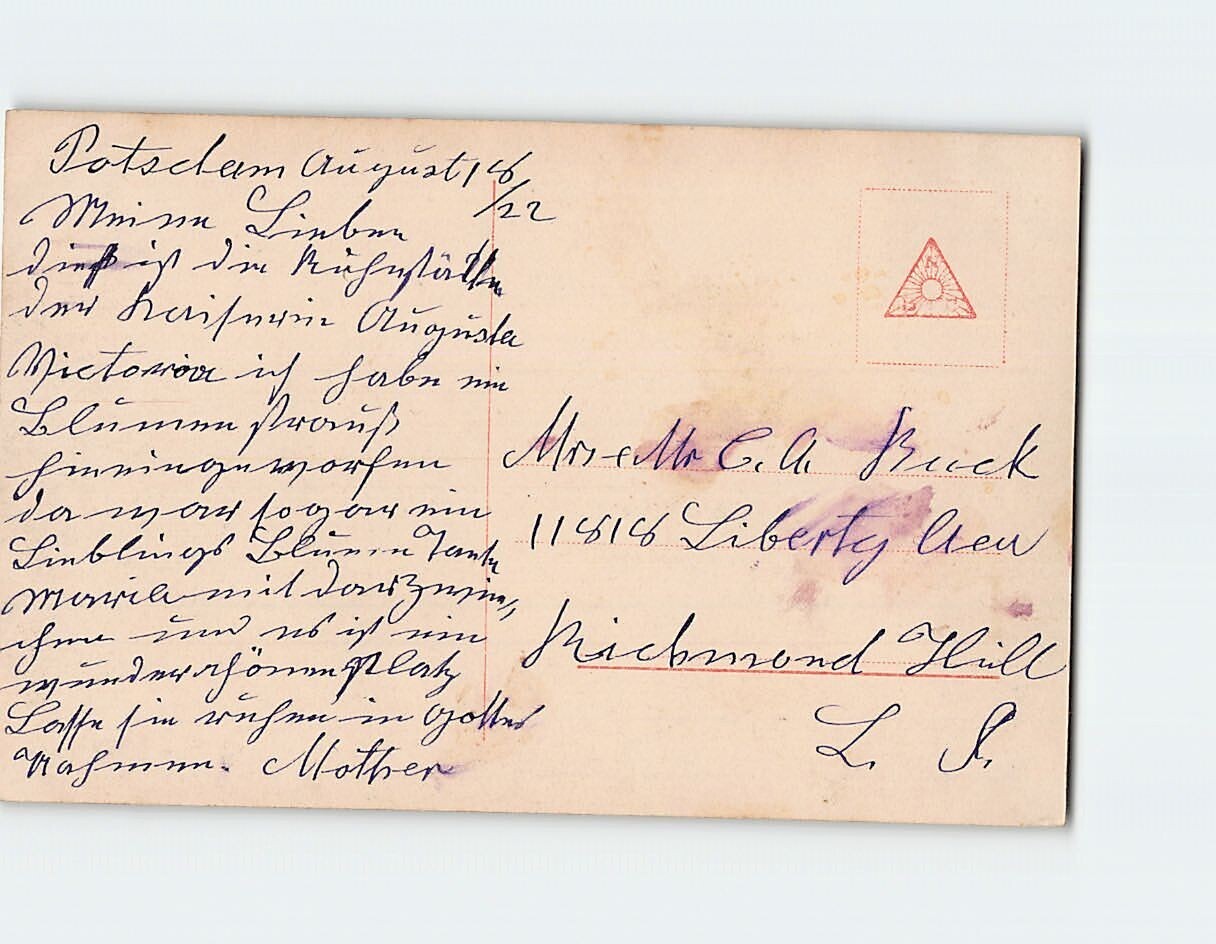 Potsdam August 18
/22
Meine Lieben
dieß ist die Ruhestätte
der Kaiserin Augusta
Victoria ich habe ein
Blumenstrauß
hineingeworfen
da war sogar ein
Lieblings Blume Tante
mit darzwis,,
chen und es ist ein
wunderschönen Platz
Lasse sie ruhen in Gottes
Nahmen. Mother
Mrs e Mr C. A. Buck
11818 Liberty Aev
Richmond Hill
L. I.